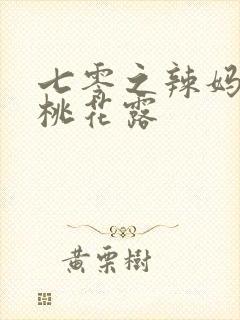 七零之辣妈
桃花露
黄栗樹